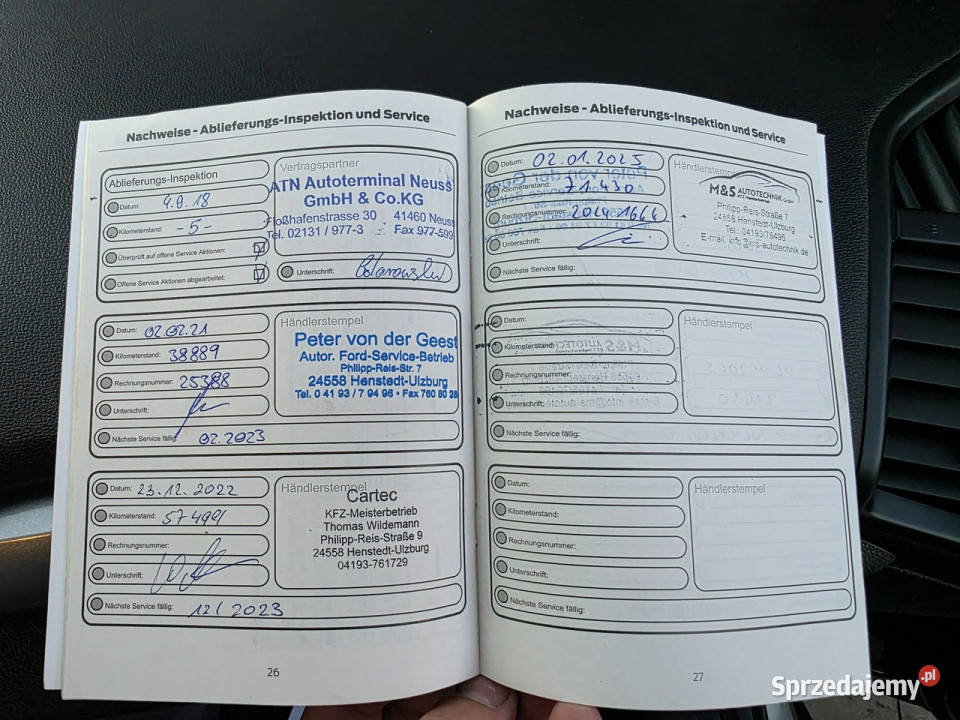 Nachweise - Ablieferungs-Inspektion und Service
Ablieferungs-Inspektion
Datum: 4.9.18
Kilometerstand: -5-
Überprüft auf offene Service Aktionen:
Offene Service Aktionen abgearbeitet:
Vertragspartner
ATN Autoterminal Neuss
GmbH & Co.KG
Floßhafenstrasse 30 41460 Neuss
Tel. 02131 / 977-3 Fax 977-599
Unterschrift:
Datum: 02.02.21
Kilometerstand: 38889
Rechnungsnummer: 25388
Unterschrift:
Nächste Service fällig: 02.2023
Händlerstempel
Peter von der Geest
Autor. Ford-Service-Betrieb
Philipp-Reis-Str. 7
24558 Henstedt-Ulzburg
Tel. 0 41 93 / 7 94 96 • Fax 760 80 28
Datum: 23.12.2022
Kilometerstand: 57499
Rechnungsnummer:
Unterschrift:
Nächste Service fällig: 12/2023
Händlerstempel
Cartec
KFZ-Meisterbetrieb
Thomas Wildemann
Philipp-Reis-Straße 9
24558 Henstedt-Ulzburg
04193-761729
26
Nachweise - Ablieferungs-Inspektion und Service
Datum: 02.01.2025
Kilometerstand: 71430
Rechnungsnummer:
Unterschrift:
Nächste Service fällig:
Händlerstempel
M&S AUTOTECHNIK GmbH
KFZ Meisterbetrieb
Philipp-Reis-Straße 7
24558 Henstedt-Ulzburg
Tel.: 04193/79496
E-mail: info@ms-autotechnik.de
Datum:
Kilometerstand:
Rechnungsnummer:
Unterschrift:
Nächste Service fällig:
Händlerstempel
Datum:
Kilometerstand:
Rechnungsnummer:
Unterschrift:
Nächste Service fällig:
Händlerstempel
27
Sprzedajemy.pl